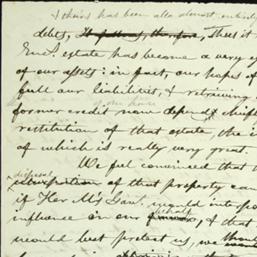 I think has been also almost entirely
debts, It follows, therefore, Thus it
Eml. estate has become a very
of our assets: in fact, our hopes of
full our liabilities, & retrieving
of our house
former credit now depend chiefly
restitution of that estate, the
of which is really very great.
We feel convinced that
disposal
of that property can
if Her M's Govt. would interpose
influence on our behalf, & that
would best protect us, we